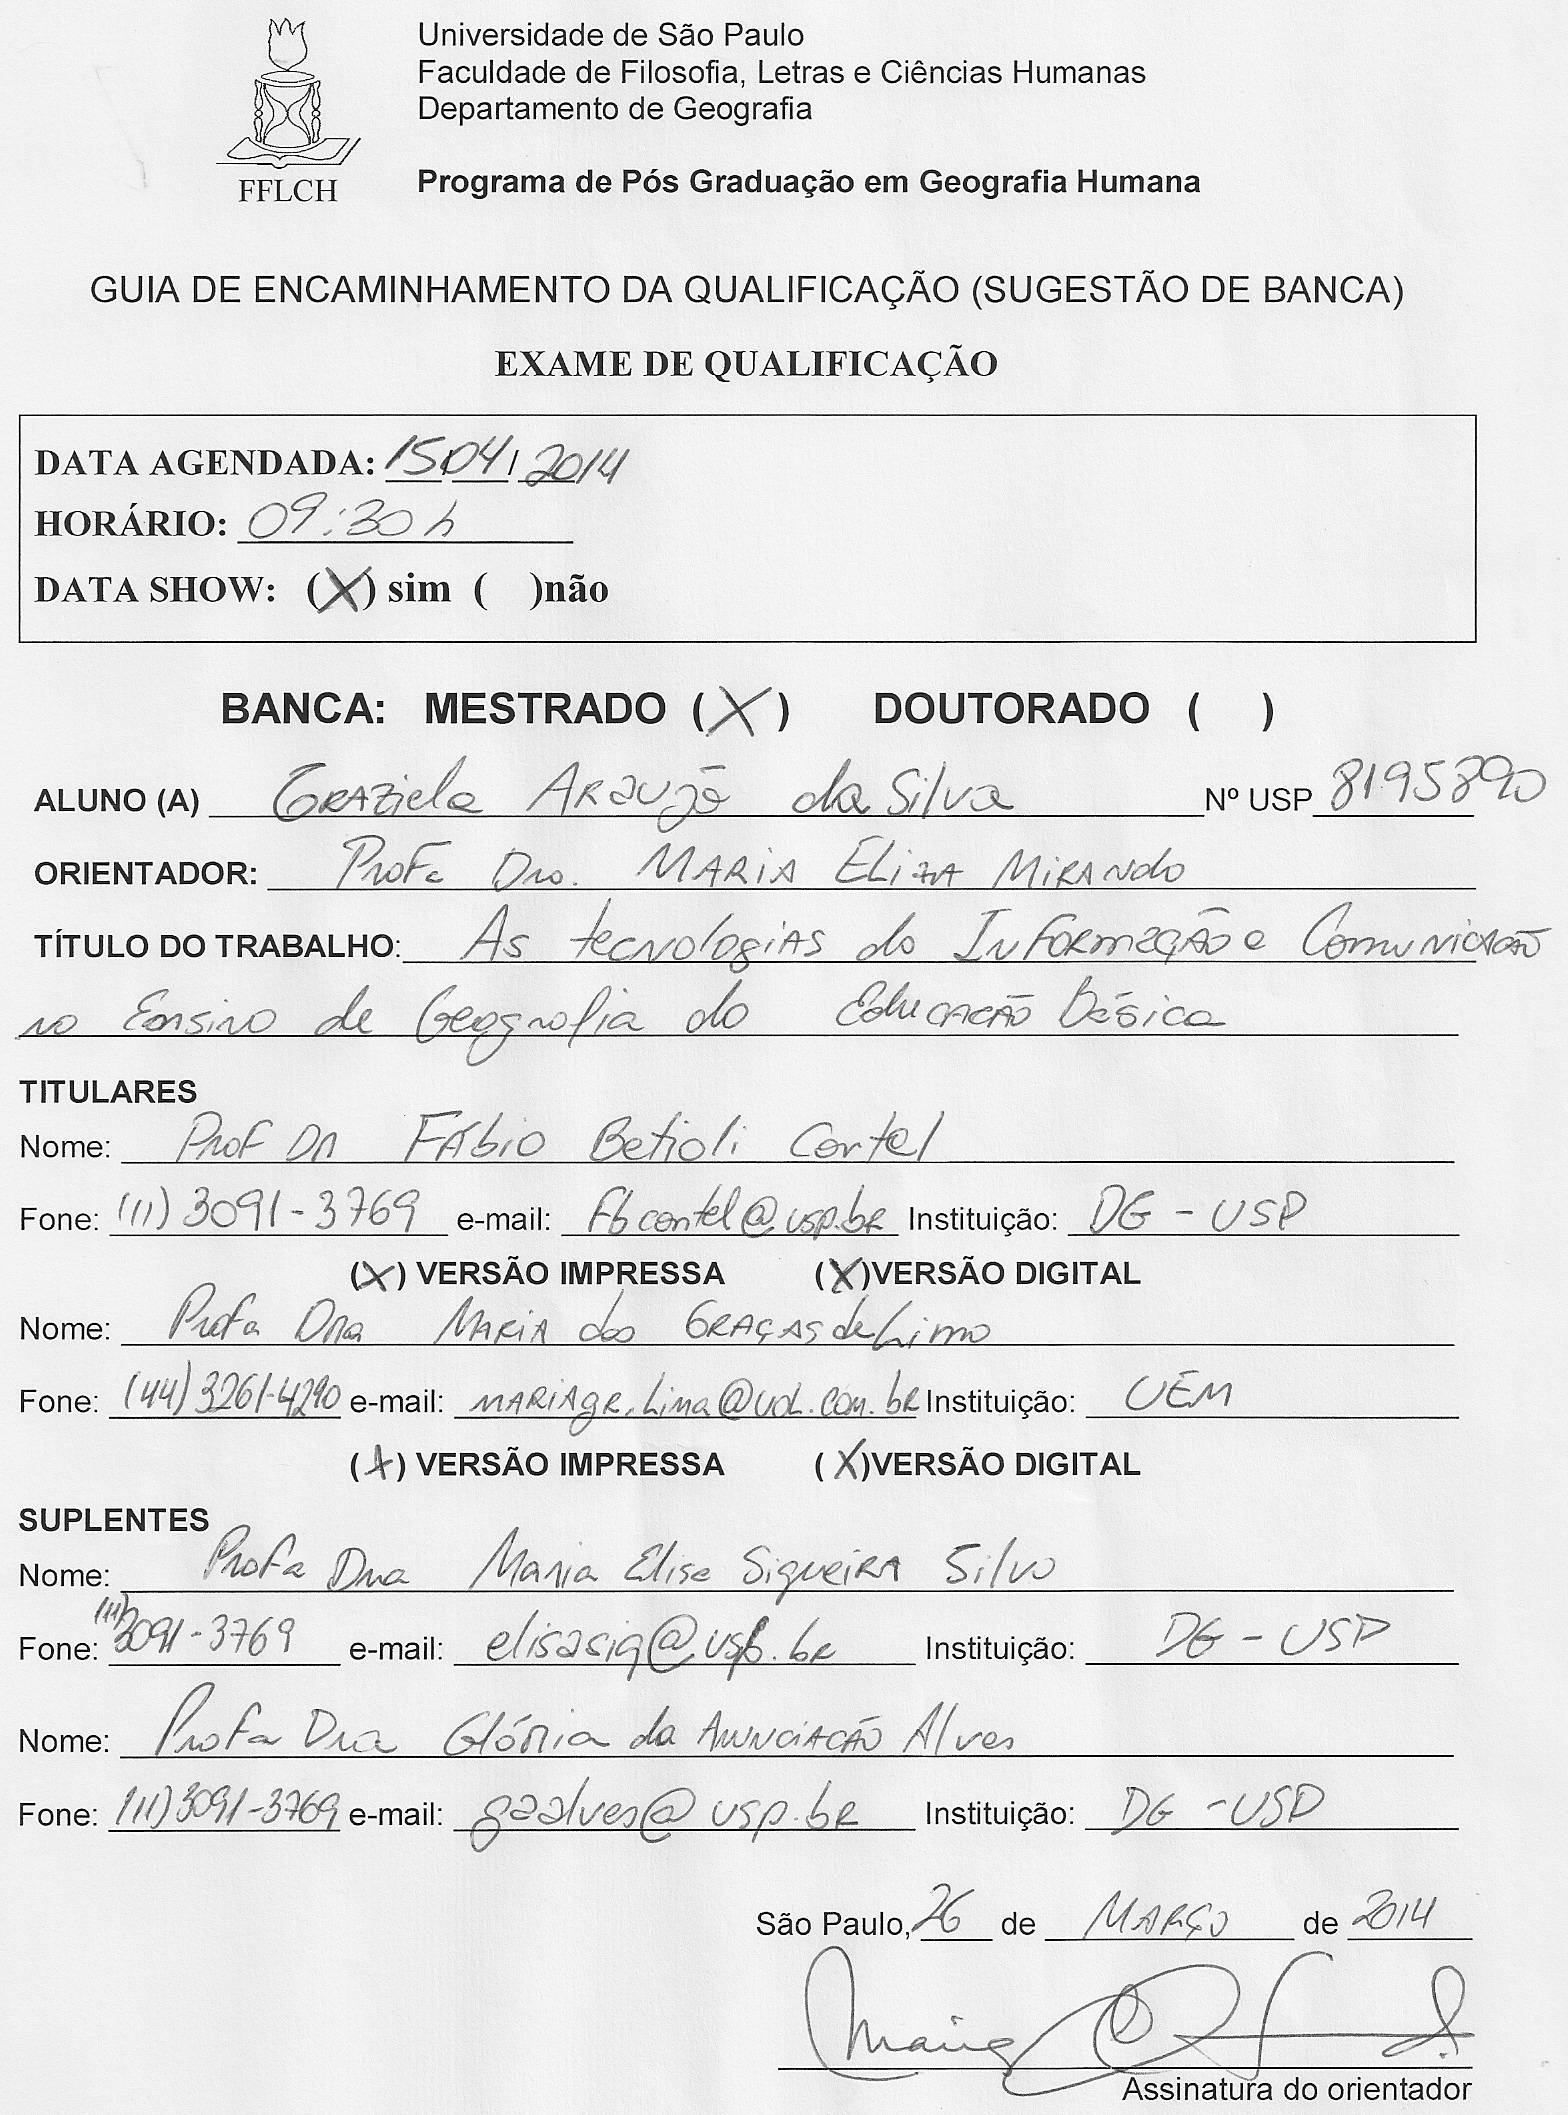 Universidade de São Paulo
Faculdade de Filosofia, Letras e Ciências Humanas
Departamento de Geografia
FFLCH
Programa de Pós Graduação em Geografia Humana
GUIA DE ENCAMINHAMENTO DA QUALIFICAÇÃO (SUGESTÃO DE BANCA)
EXAME DE QUALIFICAÇÃO
DATA AGENDADA: 15/04/2014
HORÁRIO: 09:30 h
DATA SHOW: (X) sim ( )não
BANCA: MESTRADO (X) DOUTORADO ( )
ALUNO (A) Graziela Araujo da Silva Nº USP 8195890
ORIENTADOR: Profa Dra. Maria Eliza Miranda
TÍTULO DO TRABALHO: As tecnologias da Informação e Comunicação
no Ensino de Geografia da Educação Básica
TITULARES
Nome: Prof Dr Fábio Betioli Contel
Fone: (11) 3091-3769 e-mail: fbcontel@usp.br Instituição: DG - USP
(X) VERSÃO IMPRESSA (X)VERSÃO DIGITAL
Nome: Profa Dra Maria das Graças de Lima
Fone: (44) 3261-4290 e-mail: mariagr.lima@uol.com.br Instituição: UEM
(X) VERSÃO IMPRESSA (X)VERSÃO DIGITAL
SUPLENTES
Nome: Profa Dra Maria Elisa Siqueira Silva
Fone: (11) 3091-3769 e-mail: elisasig@usp.br Instituição: DG - USP
Nome: Profa Dra Glória da Anunciação Alves
Fone: (11) 3091-3769 e-mail: gaalves@usp.br Instituição: DG - USP
São Paulo, 26 de Março de 2014
Assinatura do orientador